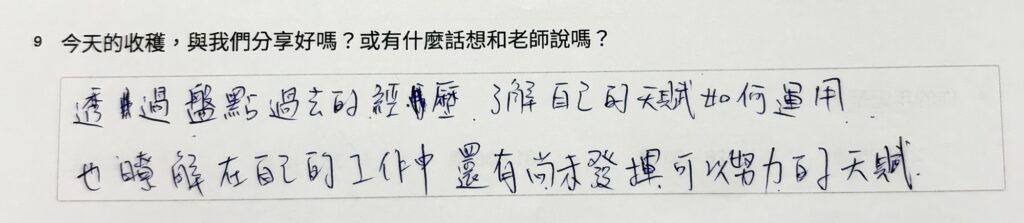 9 今天的收穫，與我們分享好嗎？或有什麼話想和老師說嗎？
透過盤點過去的經歷．了解自己的天賦如何運用
也瞭解在自己的工作中還有尚未發揮可以努力的天賦．